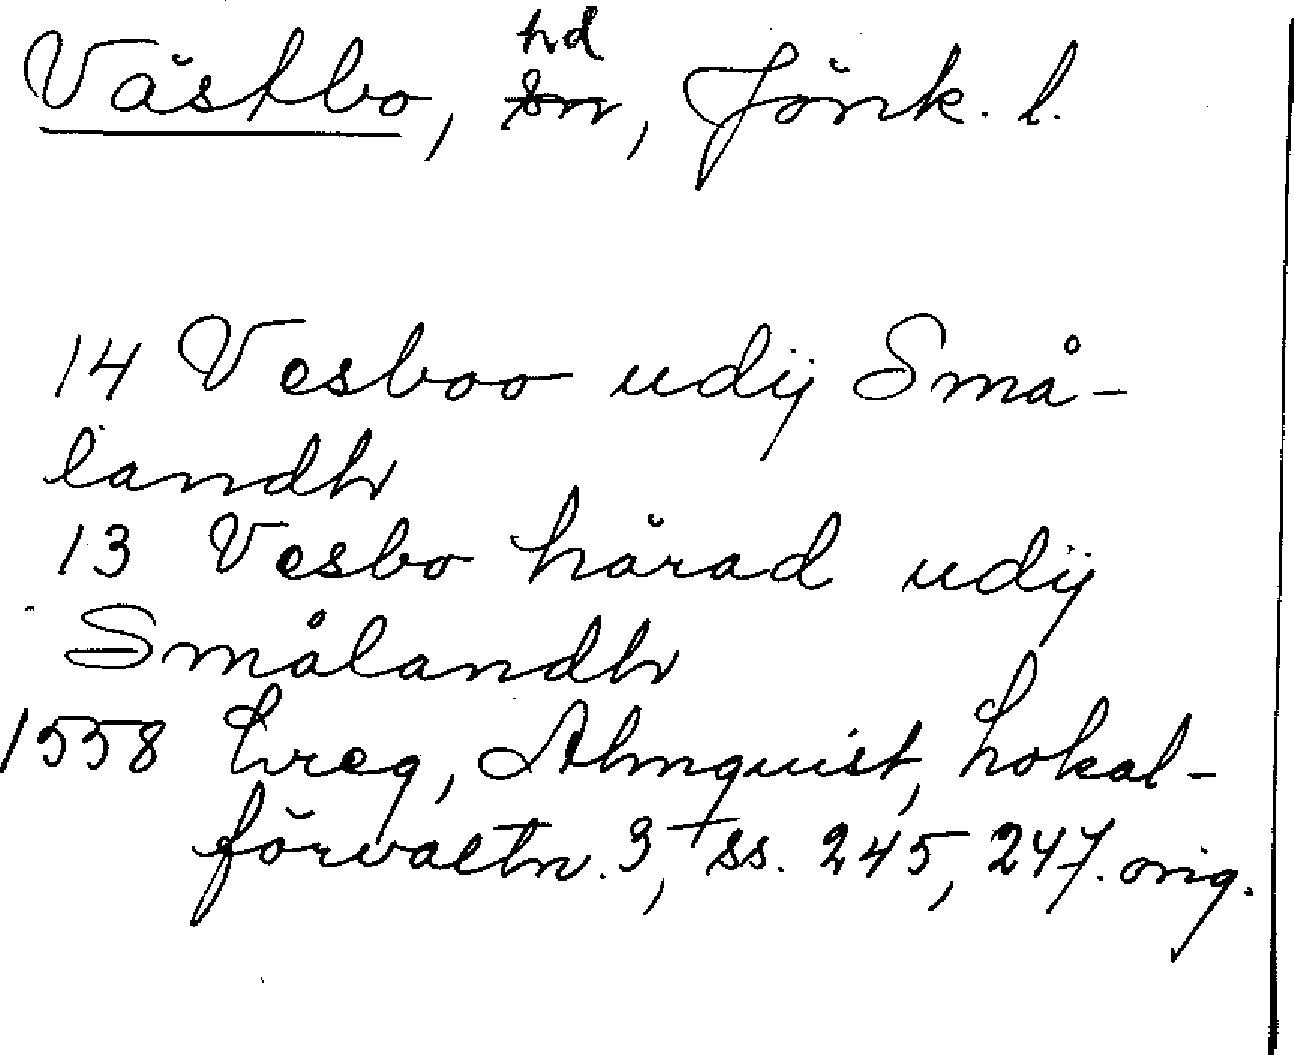 Västbo, hd, Jönk. l.
14 Vesboo udÿ Små-
landh
13 Vesbo härad udÿ
Smålandh
1558 Lreg, Almquist, Lokal-
förvaltn. 3, ss. 245, 247. orig.